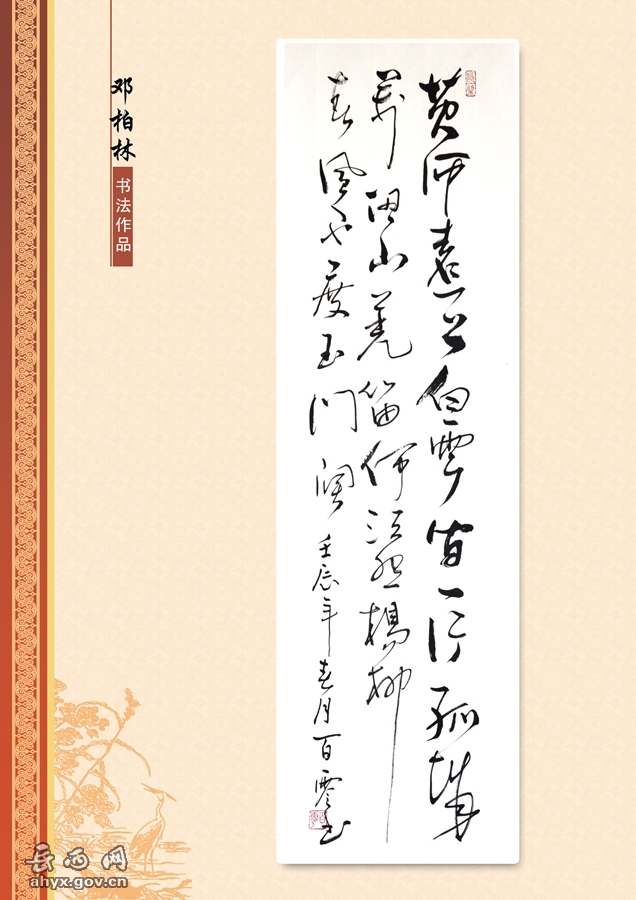 邓柏林
书法作品
黄河遠上白雲間一片孤城
萬仞山羌笛何須怨楊柳
春風不度玉門関 壬辰年春月百書
岳西网
ahyx.gov.cn